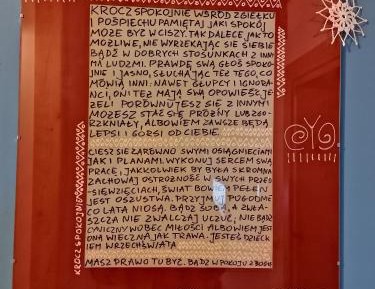 KROCZ SPOKOJNIE WŚRÓD ZGIEŁKU
I POŚPIECHU PAMIĘTAJ JAKI SPOKÓJ
MOŻE BYĆ W CISZY. TAK DALECE JAK TO
MOŻLIWE, NIE WYRZEKAJĄC SIĘ SIEBIE
BĄDŹ W DOBRYCH STOSUNKACH Z INNY
MI LUDŹMI. PRAWDĘ SWĄ GŁOŚ SPOKO-
JNIE I JASNO, SŁUCHAJĄC TEŻ TEGO, CO
MÓWIĄ INNI: NAWET GŁUPCY I IGNORA-
NCI, ONI TEŻ MAJĄ SWĄ OPOWIEŚĆ. JE
ŻELI PORÓWNUJESZ SIĘ Z INNYMI
MOŻESZ STAĆ SIĘ PRÓŻNY LUB ZGO-
RZKNIAŁY, ALBOWIEM ZAWSZE BĘDĄ
LEPSI I GORSI OD CIEBIE.
CIESZ SIĘ ZARÓWNO SWYMI OSIĄGNIĘCIAMI
JAK I PLANAMI. WYKONUJ SERCEM SWĄ
PRACĘ, JAKKOLWIEK BY BYŁA SKROMNA
ZACHOWAJ OSTROŻNOŚĆ W SWYCH PRZED
SIĘWZIĘCIACH, ŚWIAT BOWIEM PEŁEN
JEST OSZUSTWA. PRZYJMUJ POGODNIE
CO LATA NIOSĄ. BĄDŹ SOBĄ, A ZWŁA-
SZCZA NIE ZWALCZAJ UCZUĆ, NIE BĄDŹ
CYNICZNY WOBEC MIŁOŚCI ALBOWIEM JEST
ONA WIECZNA JAK TRAWA. JESTEŚ DZIECK
IEM WRZECHŚWIATA
MASZ PRAWO TU BYĆ. BĄDŹ W POKOJU Z BOGIE
KROCZ SPOKOJNIE